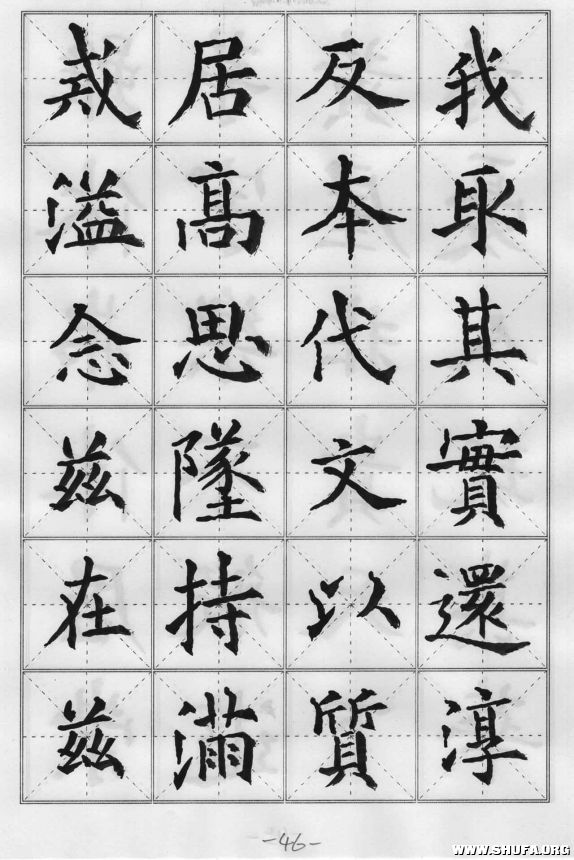 我取其實還淳
反本代文以質
居高思墜持滿
戒溢念兹在兹
-46-
WWW.SHUFA.ORG